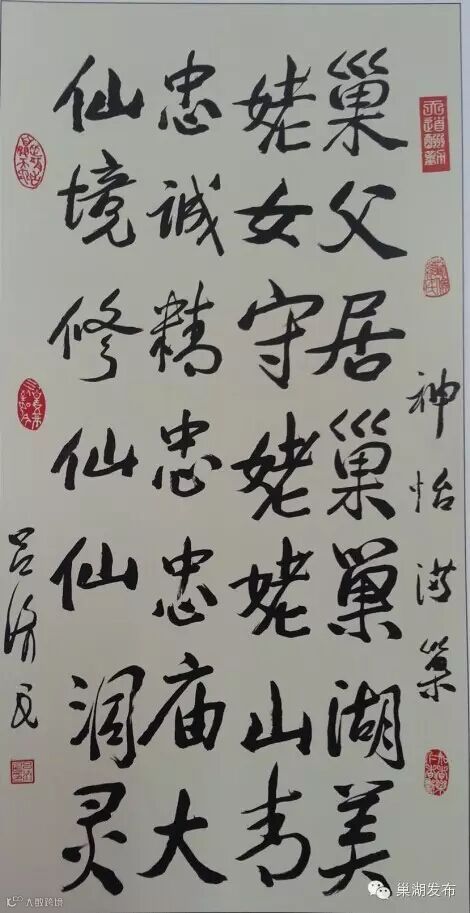 神怡满巢
巢父居巢巢湖美
姥女守姥姥山青
忠诚精忠忠庙大
仙境修仙仙洞灵
吕济民
巢湖发布
大数跨境